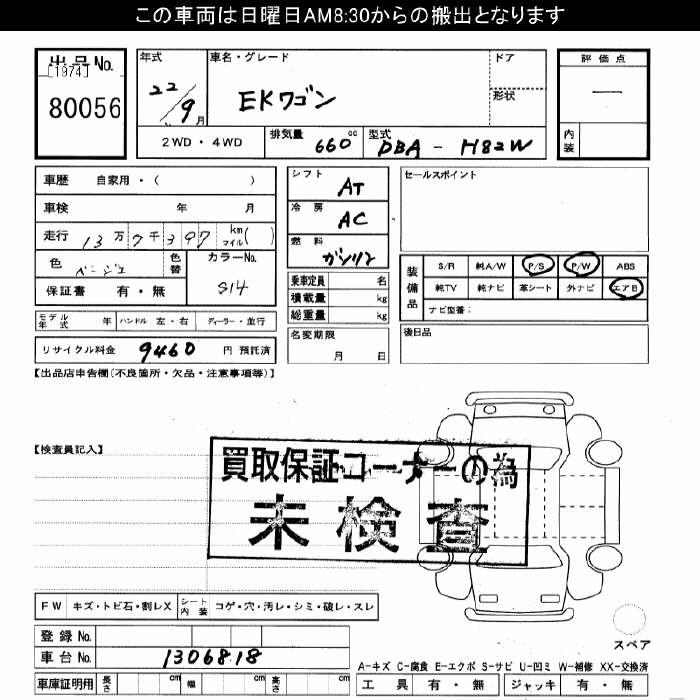 この車両は日曜日AM8:30からの搬出となります
出品No.
[1974]
80056
年式
22/9月
車名・グレード
EKワゴン
ドア
形状
評価点
—
内装
2WD・4WD
排気量
660cc
型式
DBA - H82W
車歴 自家用・(        )
車検 年 月
走行 13万7千397 km マイル( )
色 ベージュ
色替
カラーNo.
S14
保証書 有・無
シフト
AT
冷房
AC
燃料
ガソリン
乗車定員 名
積載量 kg
総重量 kg
セールスポイント
装備品
S/R 純A/W P/S P/W ABS
純TV 純ナビ 革シート 外ナビ エアB
ナビ型番:
モデル年式 年 ハンドル 左・右 ディーラー・並行
名変期限
月 日
後日品
リサイクル料金 9460 円 預託済
【出品店申告欄(不良箇所・欠品・注意事項等)】
【検査員記入】
買取保証コーナーの為
未検査
FW キズ・トビ石・割レX シート内装 コゲ・穴・汚レ・シミ・破レ・スレ
スペア
登録No.
車台No. 1306818
A-キズ C-腐食 E-エクボ S-サビ U-凹ミ W-補修 XX-交換済
車庫証明用 長さ cm 幅 cm 高さ cm
工具 有・無 ジャッキ 有・無